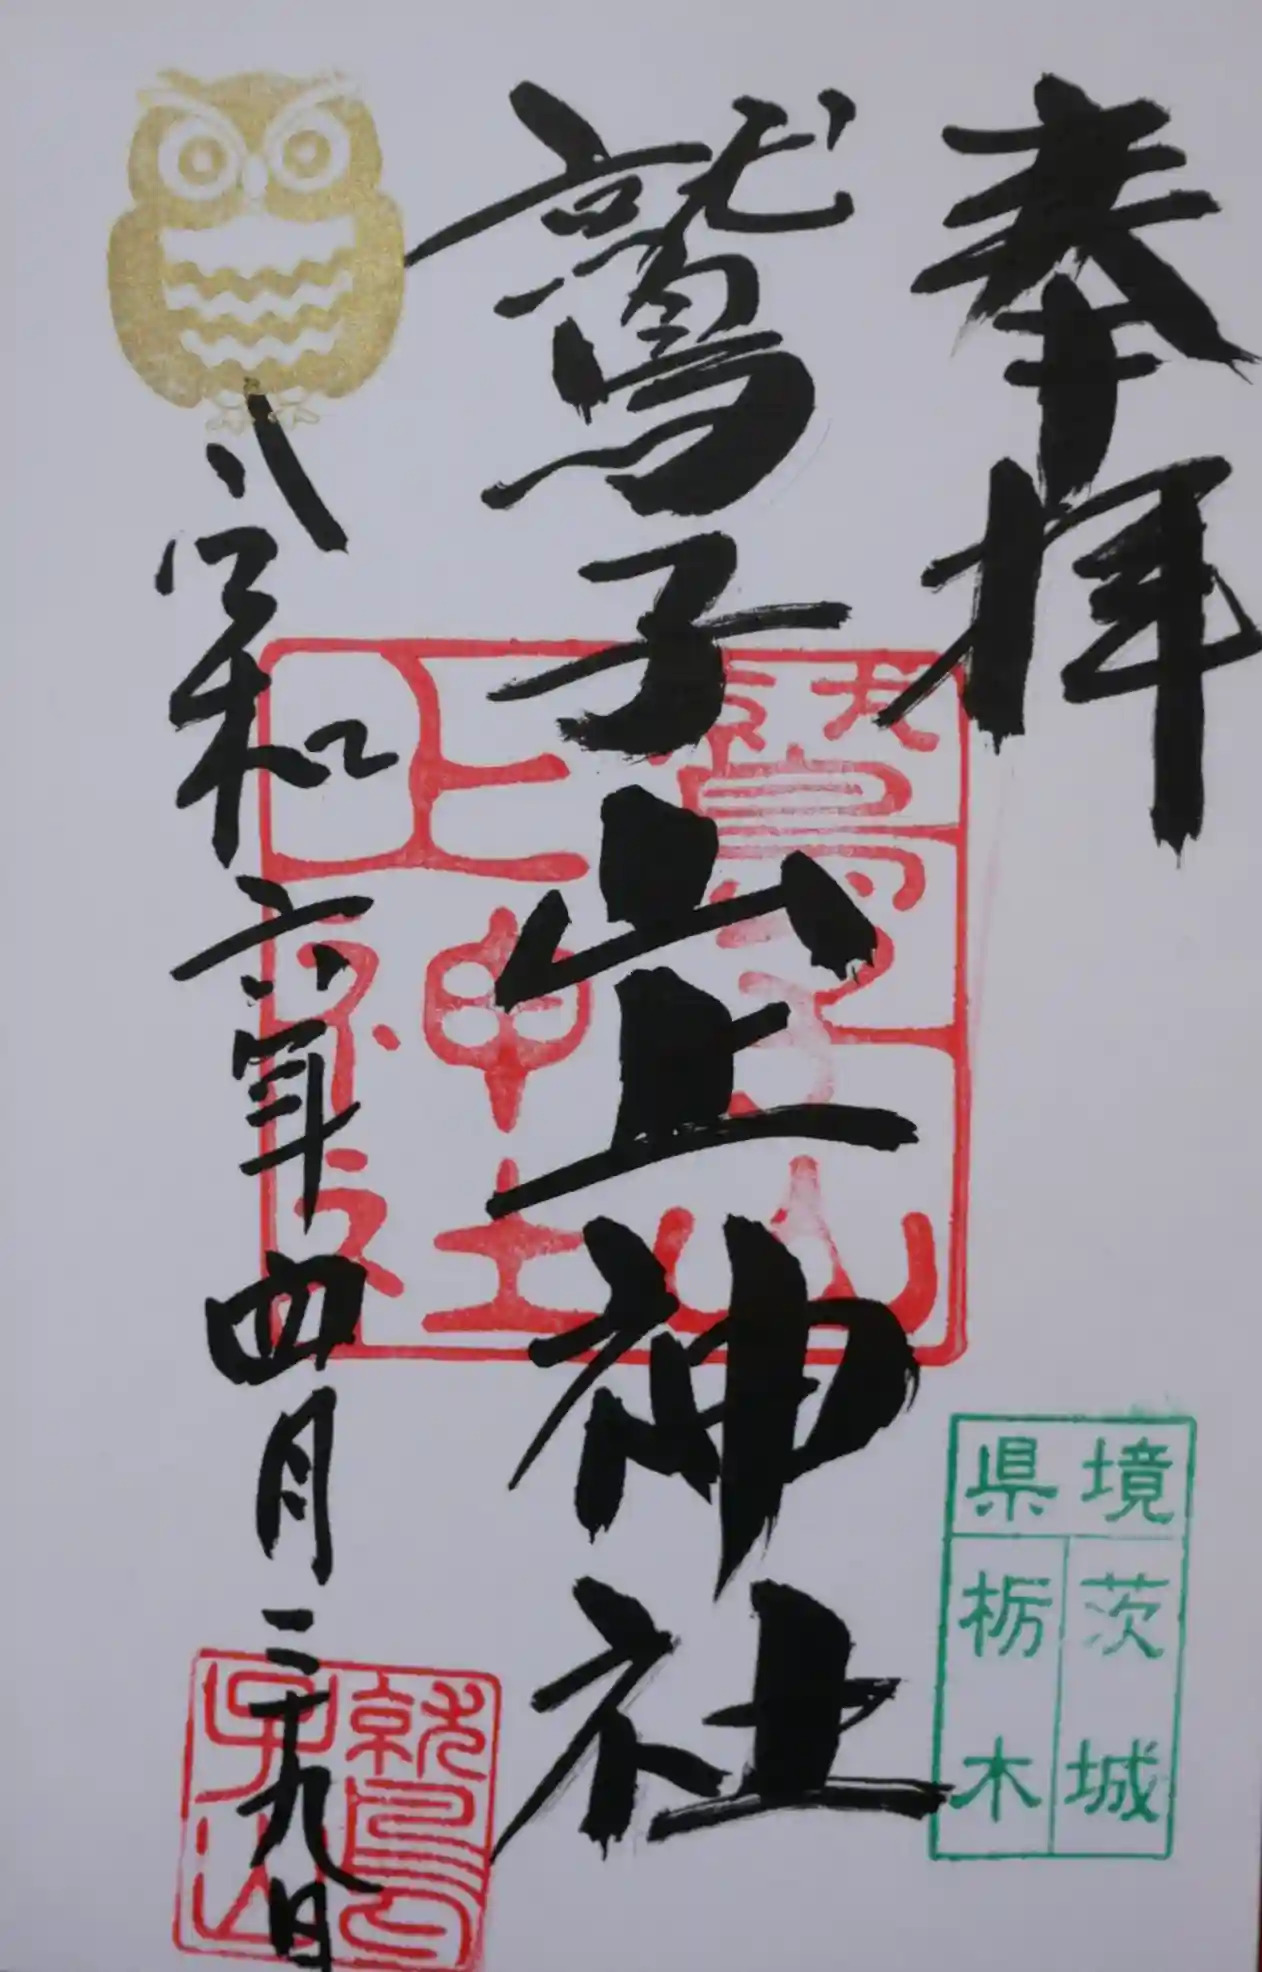 奉拝
鷲子山上神社
令和六年四月二十九日
鷲子山
上神社
境県
茨城
栃木
鷲
子山